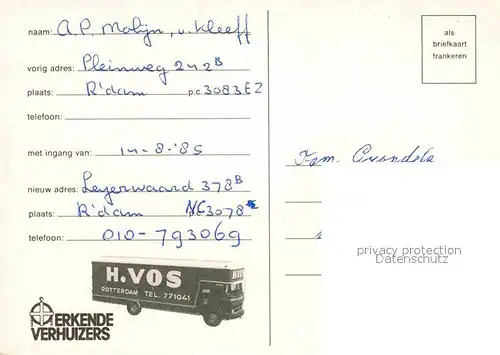 naam: A.P. Molijn, v. Kleeff
vorig adres: Pleinweg 242B
plaats: R'dam p.c. 3083EZ
telefoon:
met ingang van: 14-8-'85
nieuw adres: Leyerwaard 378B
plaats: R'dam NC3078
telefoon: 010-793069
H.VOS
ROTTERDAM TEL. 771041
VOS
ERKENDE
VERHUIZERS
als
briefkaart
frankeren
Fam.
privacy protection
Datenschutz